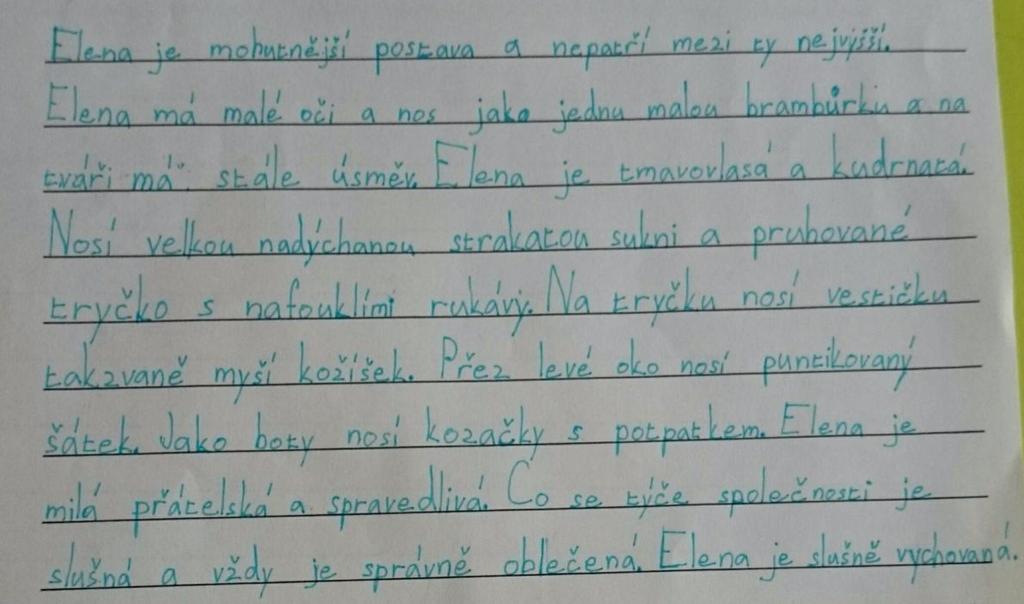 Elena je mohutnější postava a nepatří mezi ty nejvjšší.
Elena má malé oči a nos jako jednu malou brambůrku a na
tváři má stále úsměv. Elena je tmavovlasá a kudrnatá.
Nosí velkou nadýchanou strakatou sukni a pruhované
tryčko s nafouklími rukávy. Na tryčku nosí vestičku
takzvaně myší kožíšek. Přez levé oko nosí puntikovaný
šátek. Jako boty nosí kozačky s potpatkem. Elena je
milá přátelská a spravedlivá. Co se týče společnosti je
slušná a vždy je správně oblečená. Elena je slušně vychovaná.